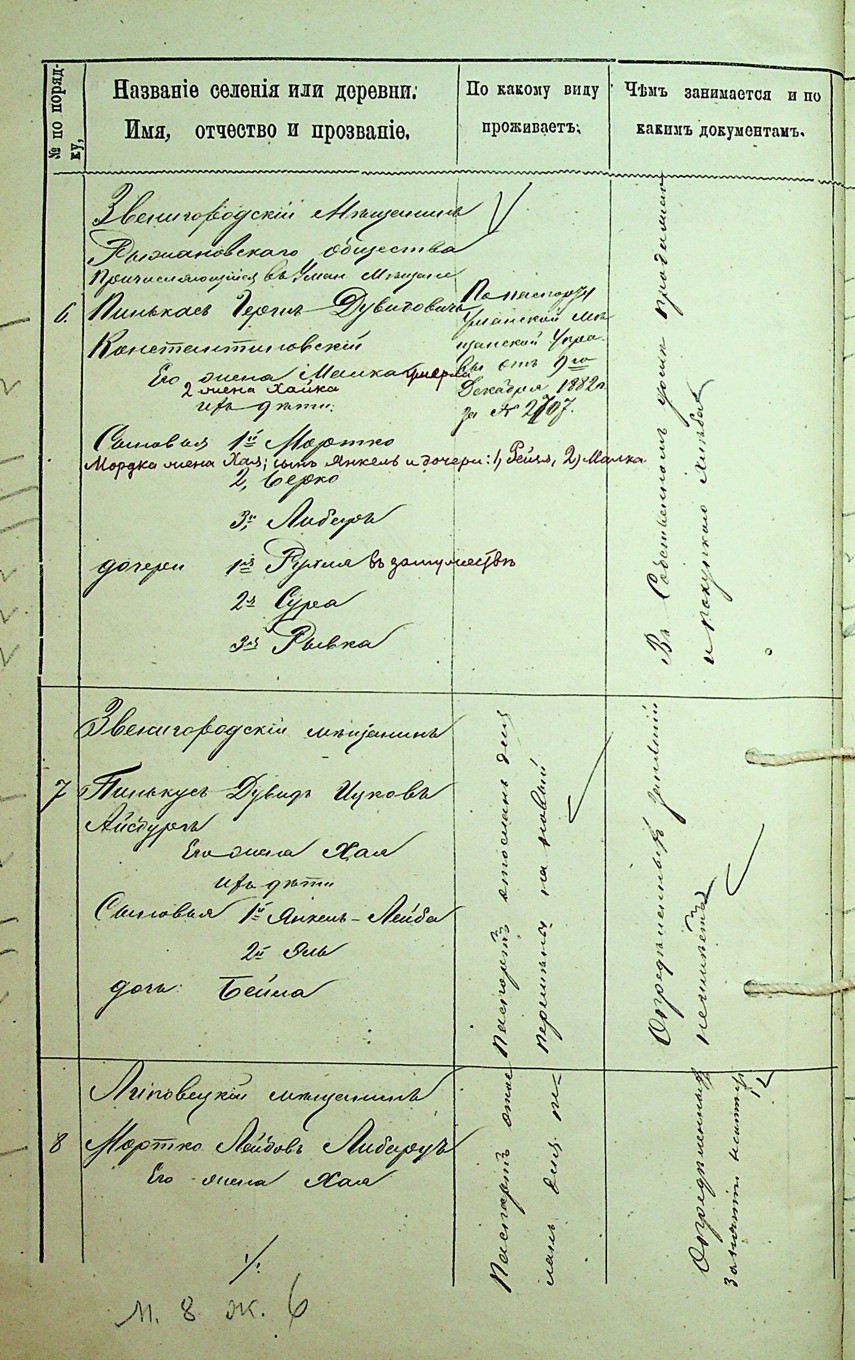 № по поряд-
ку,
Названіе селенія или деревни.
Имя, отчество и прозваніе.
По какому виду
проживаетъ.
Чѣмъ занимается и по
какимъ документамъ.
6.
Звенигородскій Мѣщанинъ
Рыжановскаго общества
причисляющійся въ Уман Мѣщане
Пинькасъ Гершъ Дувидовичъ
Константиновскій
Его жена Малка умерла
2 жена Хайка
ихъ дѣти:
Сыновья 1й Мортко
Мордка жена Хая; сынъ Янкель и дочери: 1, Рейзя, 2) Малка
2, Берко
3й Либеръ
дочери 1я Рухля въ замужествѣ
2я Сура
3я Рывка
По паспорту
Уманской Мѣ
щанской Упра
вы отъ 9го
Декабря 1882г.
за № 2707.
Въ Собственномъ домѣ
и покупкою хлѣба
7
Звенигородскій мѣщанинъ
Пинькусъ Дувидъ Ицковъ
Его жена Хая
ихъ дѣти
Сыновья 1й Янкель-Лейба
2й Эль
дочь: Бейла
Паспортъ отосланъ для
перемѣны на новый
Опредѣленныхъ занятій
неимѣетъ
8
Липовецкій мѣщанинъ
Мортко Лейбовъ
Его жена Хая
Паспортъ отос
ланъ для пе-
Опредѣленныхъ
занятій
м. 8 ж. 6